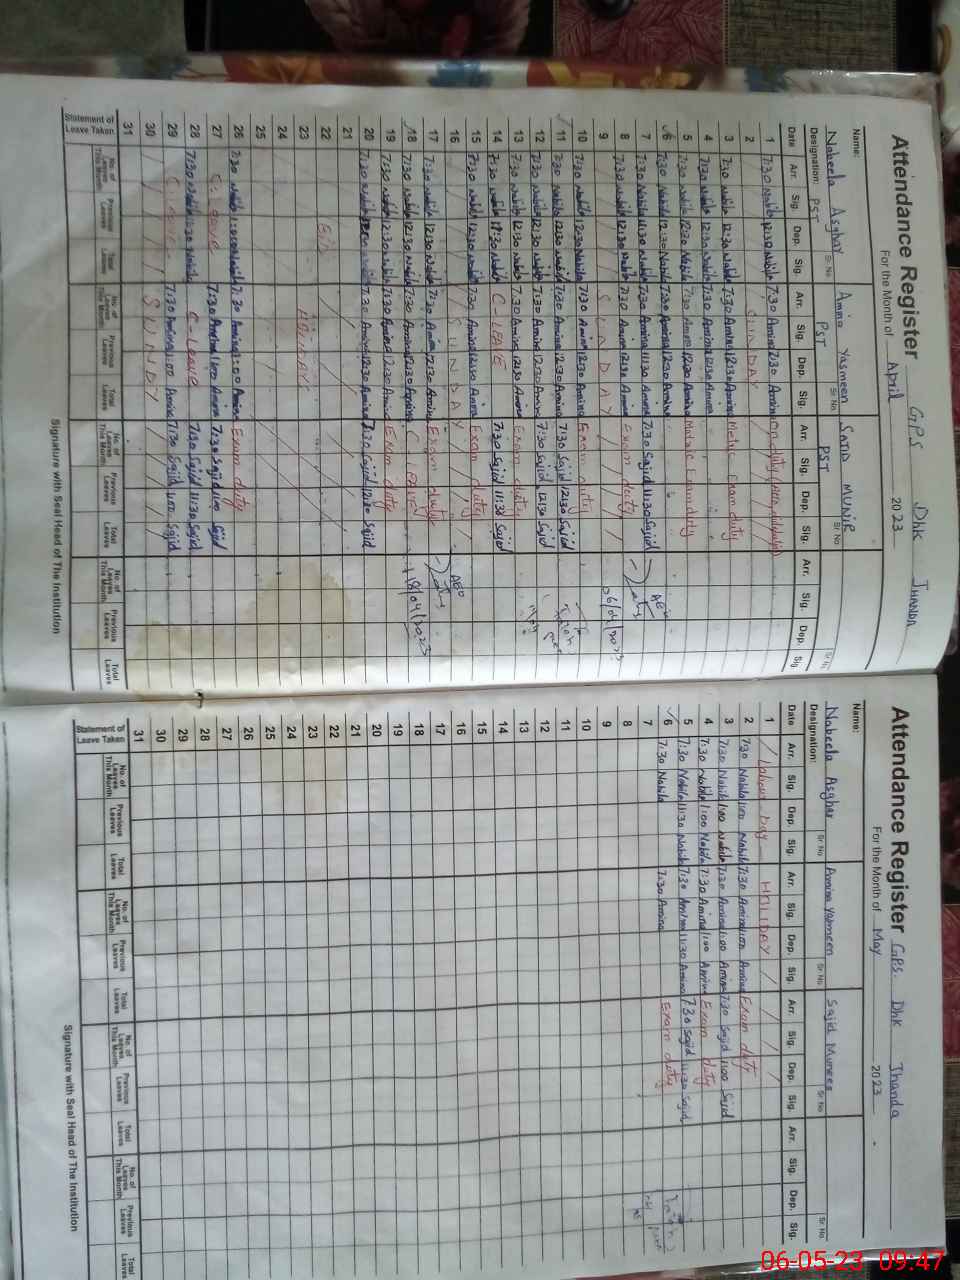 Attendance Register GPS Dhk Thanda
For the Month of April 2023
Name: Nabeela Asghar Sr. No Amina Yasmeen Sr No SAJID MUNIR Sr No Sr No
Designation: PST PST PST
Date Arr. Sig. Dep. Sig. Arr. Sig. Dep. Sig. Arr. Sig. Dep. Sig. Arr. Sig. Dep. Sig
1 7:30 Nabila 12:30 Nabila 7:30 Amina 12:30 Amina on duty
2 SUNDAY
3 7:30 Nabila 12:30 Nabila 7:30 Amina 12:30 Amina Metric Exam duty
4 7:30 Nabila 12:30 Nabila 7:30 Amina 12:30 Amina
5 7:30 Nabila 12:30 Nabila 7:30 Amina 12:30 Amina Metric Exam duty
6 7:30 Nabila 12:30 Nabila 7:30 Amina 12:30 Amina
7 7:30 Nabila 11:30 Nabila 7:30 Amina 11:30 Amina 7:30 Sajid 11:30 Sajid AEO
8 7:30 Nabila 12:30 Nabila 7:30 Amina 12:30 Amina Exam duty
9 SUNDAY 06/04/2023
10 7:30 Nabila 12:30 Nabila 7:30 Amina 12:30 Amina Exam duty
11 7:30 Nabila 12:30 Nabila 7:30 Amina 12:30 Amina 7:30 Sajid 12:30 Sajid
12 7:30 Nabila 12:30 Nabila 7:30 Amina 12:30 Amina 7:30 Sajid 12:30 Sajid
13 7:30 Nabila 12:30 Nabila 7:30 Amina 12:30 Amina Exam duty
14 7:30 Nabila 11:30 Nabila C-LEAVE 7:30 Sajid 11:30 Sajid
15 7:30 Nabila 12:30 Nabila 7:30 Amina 12:30 Amina Exam duty
16 SUNDAY AEO
17 7:30 Nabila 12:30 Nabila 7:30 Amina 12:30 Amina Exam duty
18 7:30 Nabila 12:30 Nabila 7:30 Amina 12:30 Amina C Leave 18/04/2023
19 7:30 Nabila 12:30 Nabila 7:30 Amina 12:30 Amina Exam duty
20 7:30 Nabila 12:30 Nabila 7:30 Amina 12:30 Amina 7:30 Sajid 12:30 Sajid
21
22 Eid
23 HOLIDAY
24
25
26 7:30 Nabila 1:00 Nabila 7:30 Amina 1:00 Amina Exam duty
27 C-Leave 7:30 Amina 1:00 Amina 7:30 Sajid 1:00 Sajid
28 7:30 Nabila 11:30 Nabila C-Leave 7:30 Sajid 11:30 Sajid
29 C-Leave 7:30 Amina 1:00 Amina 7:30 Sajid 1:00 Sajid
30 SUNDAY
31
Statement of Leave Taken No. of Leaves This Month Previous Leaves Total Leaves No. of Leaves This Month Previous Leaves Total Leaves No. of Leaves This Month Previous Leaves Total Leaves No. of Leaves This Month Previous Leaves Total Leaves
Signature with Seal Head of The Institution
Attendance Register GPS. Dhk Thanda
For the Month of May 2023
Name: Nabeela Asghar Sr No Amina Yasmeen Sr No Sajid Muneer Sr No Sr No
Designation:
Date Arr. Sig. Dep. Sig. Arr. Sig. Dep. Sig. Arr. Sig. Dep. Sig. Arr. Sig. Dep. Sig.
1 Labour Day HOLIDAY
2 7:30 Nabila 1:00 Nabila 7:30 Amina 1:00 Amina Exam duty
3 7:30 Nabila 1:00 Nabila 7:30 Amina 1:00 Amina 7:30 Sajid 1:00 Sajid
4 7:30 Nabila 1:00 Nabila 7:30 Amina 1:00 Amina Exam duty
5 7:30 Nabila 11:30 Nabila 7:30 Amina 11:30 Amina 7:30 Sajid 11:30 Sajid
6 7:30 Nabila 7:30 Amina Exam duty
7
8
9
10
11
12
13
14
15
16
17
18
19
20
21
22
23
24
25
26
27
28
29
30
31
Statement of Leave Taken No. of Leaves This Month Previous Leaves Total Leaves No. of Leaves This Month Previous Leaves Total Leaves No. of Leaves This Month Previous Leaves Total Leaves No. of Leaves This Month Previous Leaves Total Leaves
Signature with Seal Head of The Institution
06-05-23 09:47